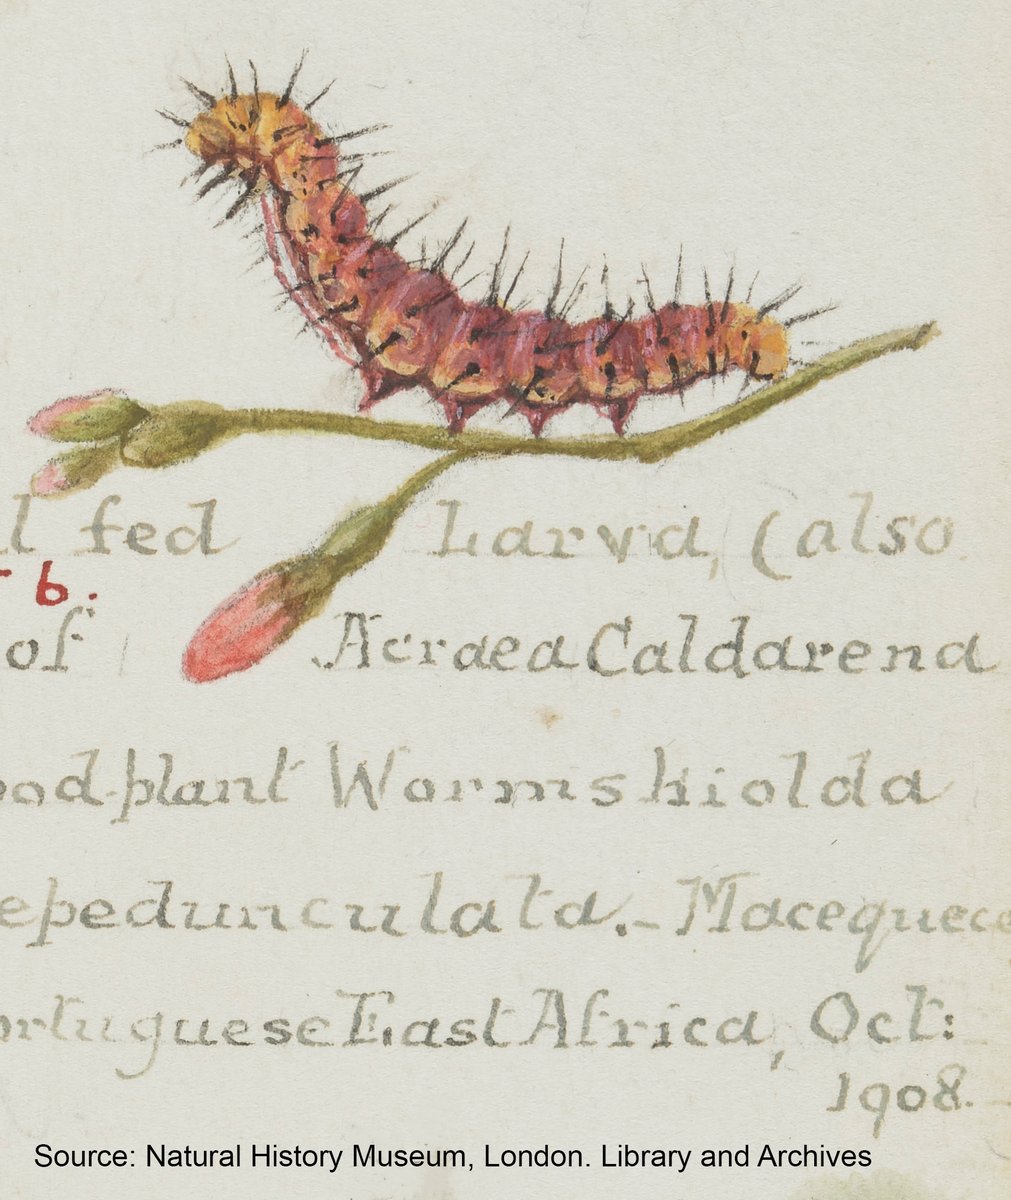 l fed Larva, (also
6.
of Acraea Caldarena
ood-plant Wormskiolda
epedunculata.- Macequece
ortuguese East Africa, Oct:
1908.
Source: Natural History Museum, London. Library and Archives